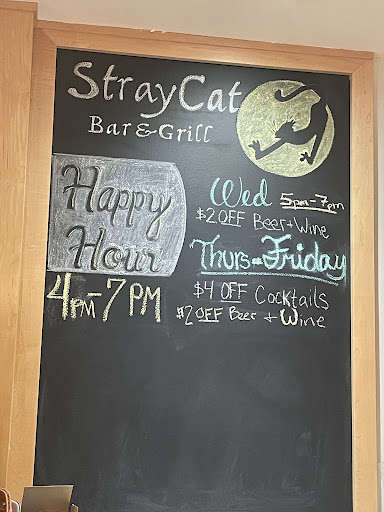 StrayCat
Bar & Grill
Happy
Hour
4PM-7PM
Wed 5pm-7pm
$2 OFF Beer + Wine
Thurs-Friday
$4 OFF Cocktails
$2 OFF Beer + Wine